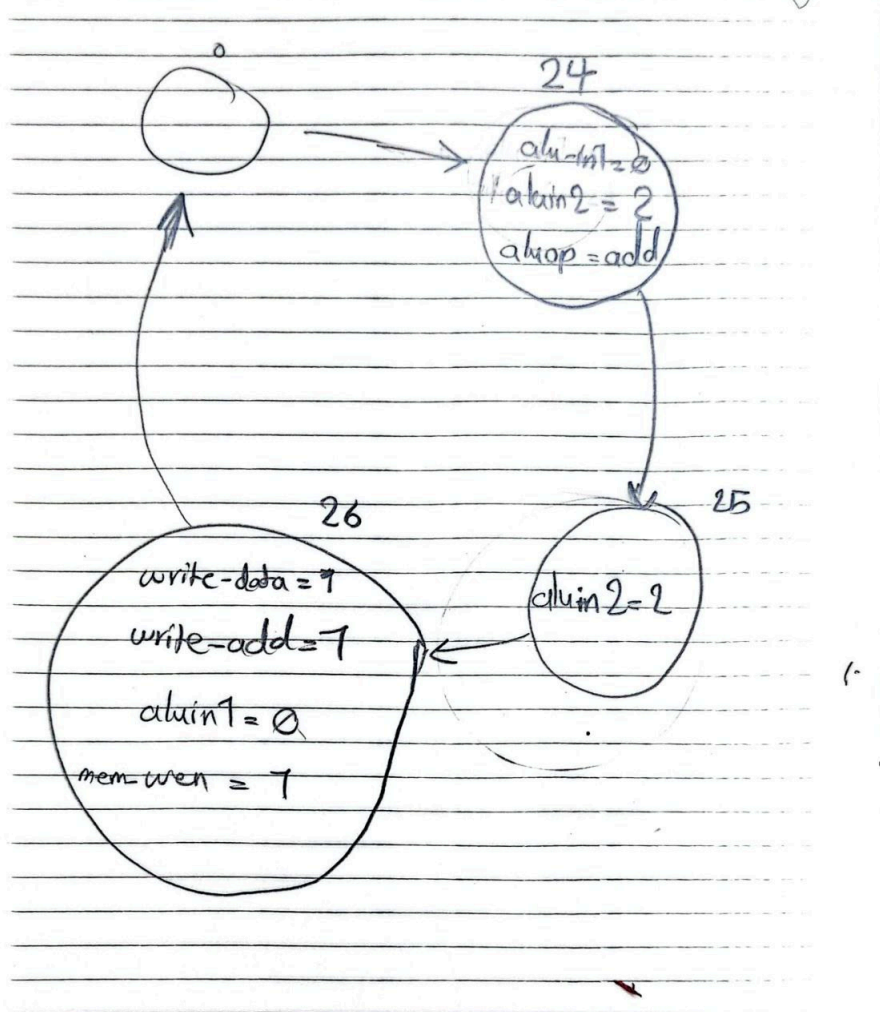 0
24
alu-in1=0
aluin2 = 2
aluop = add
25
aluin2=2
26
write-data=1
write-add=1
aluin1=0
mem-wen = 1